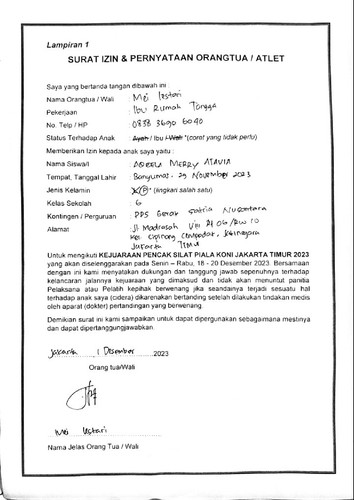 Lampiran 1
SURAT IZIN & PERNYATAAN ORANGTUA / ATLET
Saya yang bertanda tangan dibawah ini :
Nama Orangtua / Wali : Mei lestari
Pekerjaan : Ibu Rumah Tangga
No. Telp / HP : 0838 3690 6040
Status Terhadap Anak : Ayah / Ibu / Wali *(coret yang tidak perlu)
Memberikan Izin kepada anak saya yaitu :
Nama Siswa/i : AQEELA MERRY ATAVIA
Tempat, Tanggal Lahir : Banyumas, 29 November 2023
Jenis Kelamin : L/P* (lingkari salah satu)
Kelas Sekolah : 6
Kontingen / Perguruan : PPS Gerak Satria Nusantara
Alamat : Jl Madrasah VIII Rt 06/RW 10
Kel. Cipinang Jatinegara,
Jakarta Timur
Untuk mengikuti KEJUARAAN PENCAK SILAT PIALA KONI JAKARTA TIMUR 2023
yang akan diselenggarakan pada Senin – Rabu, 18 - 20 Desember 2023. Bersamaan
dengan ini kami menyatakan dukungan dan tanggung jawab sepenuhnya terhadap
kelancaran jalannya kejuaraan yang dimaksud dan tidak akan menuntut panitia
Pelaksana atau Pelatih kepihak berwenang jika seandainya terjadi sesuatu hal
terhadap anak saya (cidera) dikarenakan bertanding setelah dilakukan tindakan medis
oleh aparat (dokter) pertandingan yang berwenang.
Demikian surat ini kami sampaikan untuk dapat dipergunakan sebagaimana mestinya
dan dapat dipertanggungjawabkan.
Jakarta, 1 Desember 2023
Orang tua/Wali
Mei lestari
Nama Jelas Orang Tua / Wali